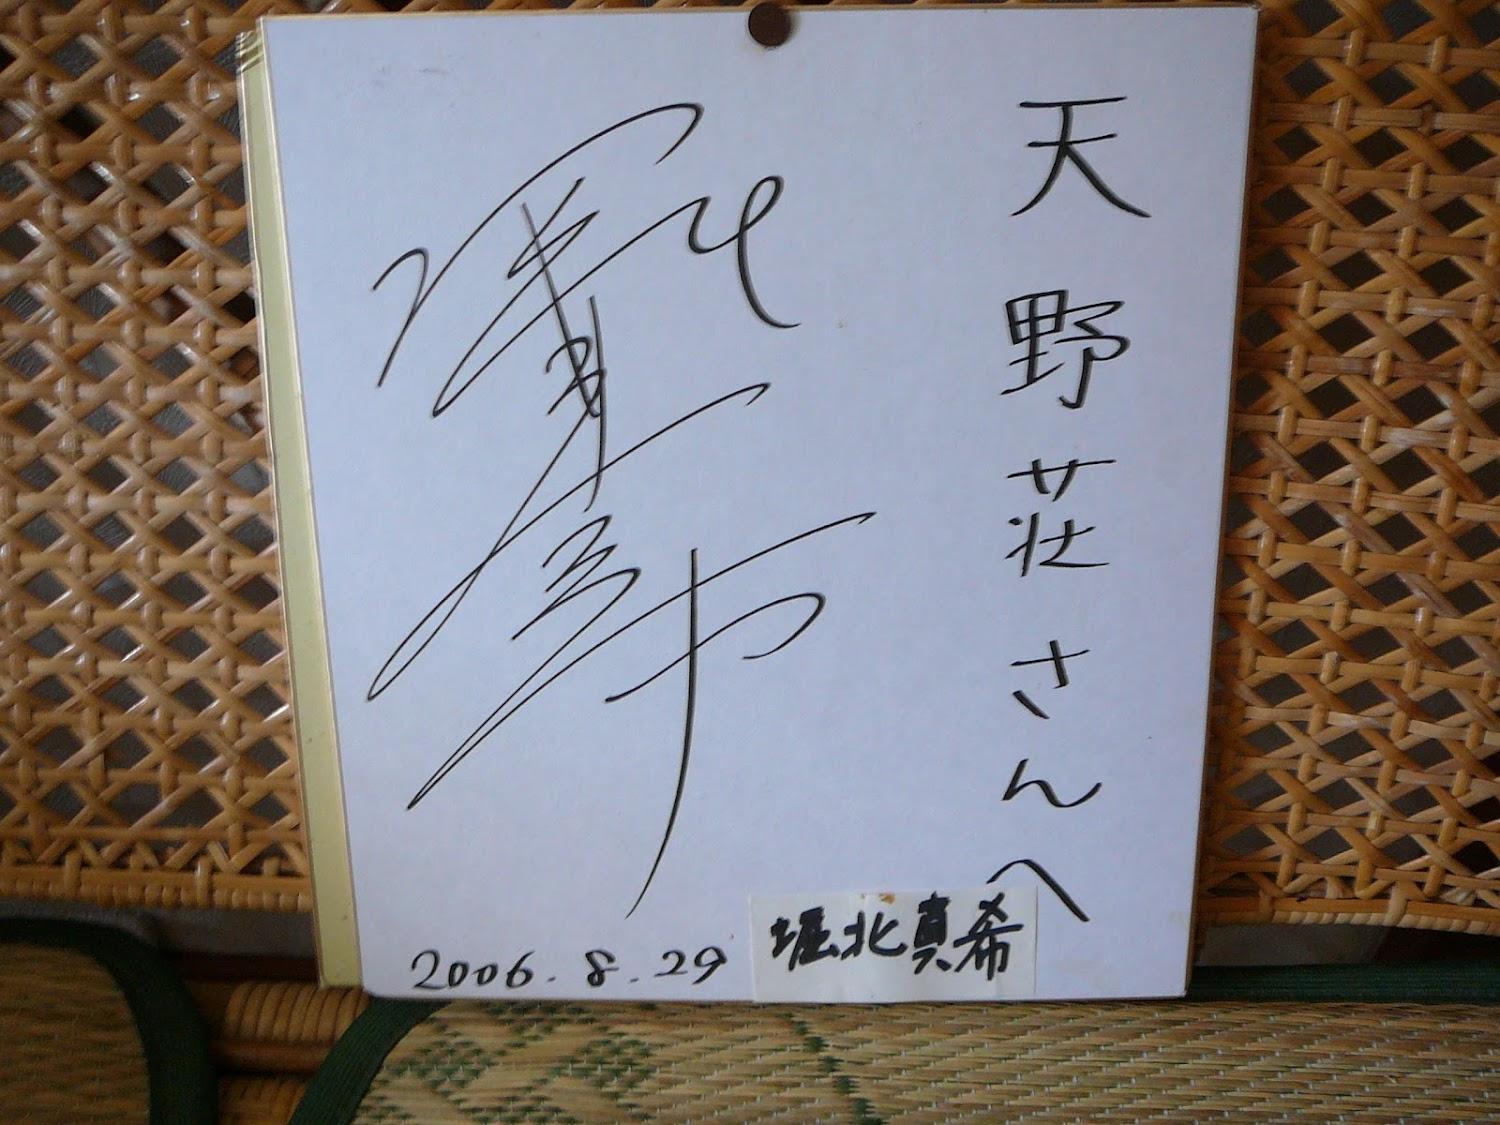 天野荘さんへ
堀北真希
2006.8.29
堀北真希